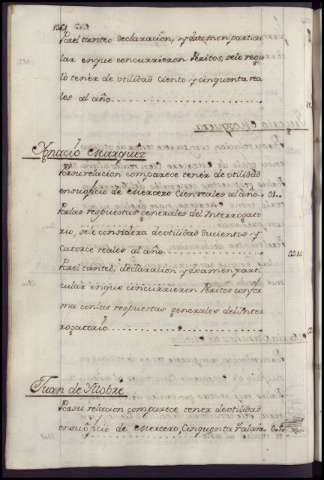 Por el tanteo declaracion, y dictamen particu
lar enque concurrieron Peritos, sele regu
lo tener de utilidad ciento y cinquenta rea
les al año
Ygnacio Marquez
Por su relacion comparece tener de utilidad
en su oficio de Mercero Cien reales al año
Por las respuestas generales del Interrogato
rio, sele considera de utilidad Ducientos y
Catorce reales al año
Por el tanteo, declaracion y dictamen parti
cular enque concurrieron Peritos confor
ma con las respuestas generales del Inter
rogatorio
Juan de
Por su relacion comparece tener de utilidad
en su oficio de Mercero, Cinquenta